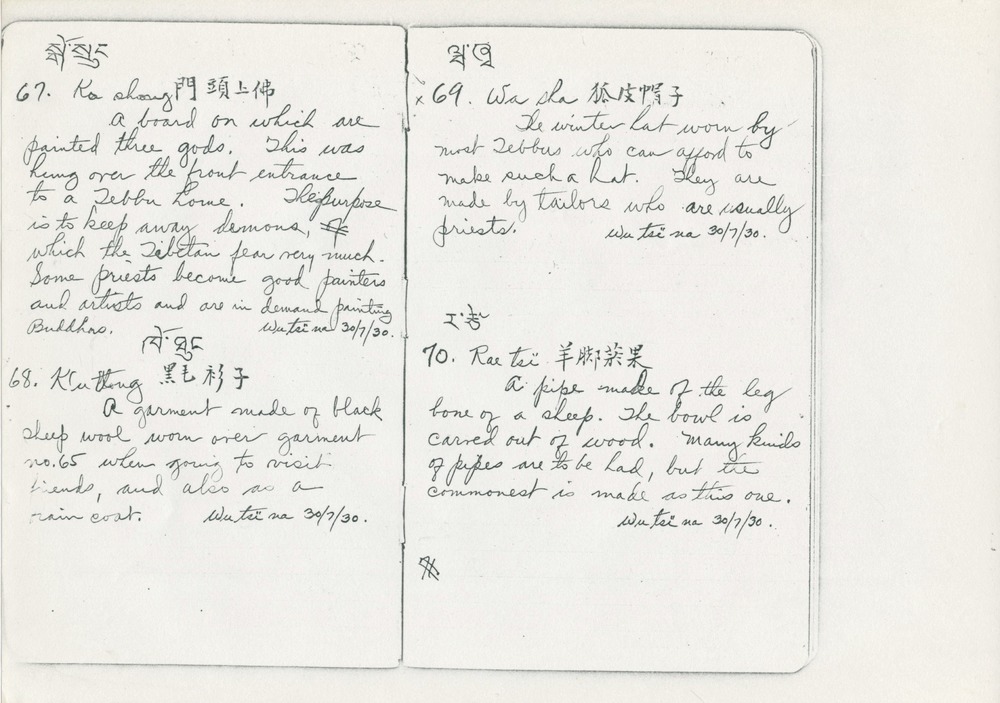 67. Ka shong 門頭上佛
A board on which are
painted three gods. This was
hung over the front entrance
to a Tebbu home. The purpose
is to keep away demons,
which the Tibetan fear very much.
Some priests become good painters
and artists and are in demand painting
Buddhas. Wu tsi na 30/7/30.
68. K'u thong 黑毛衫子
A garment made of black
sheep wool worn over garment
no. 65 when going to visit
friends, and also as a
rain coat. Wu tsi na 30/7/30.
x 69. Wa sha 狐皮帽子
The winter hat worn by
most Tebbus who can afford to
make such a hat. They are
made by tailors who are usually
priests. Wu tsi na 30/7/30.
70. Rae tsi 羊脚菸果
A pipe made of the leg
bone of a sheep. The bowl is
carved out of wood. Many kinds
of pipes are to be had, but the
commonest is made as this one.
Wu tsi na 30/7/30.